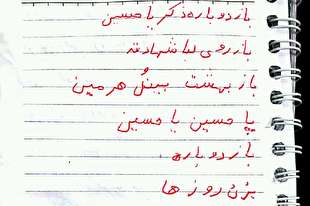 باز دوباره ذکر یا حسین
باز روی لبا شهادته
باز بهشت بین‌ُ هر مین
یا حسین یا حسین
باز دوباره
بژن روز ها